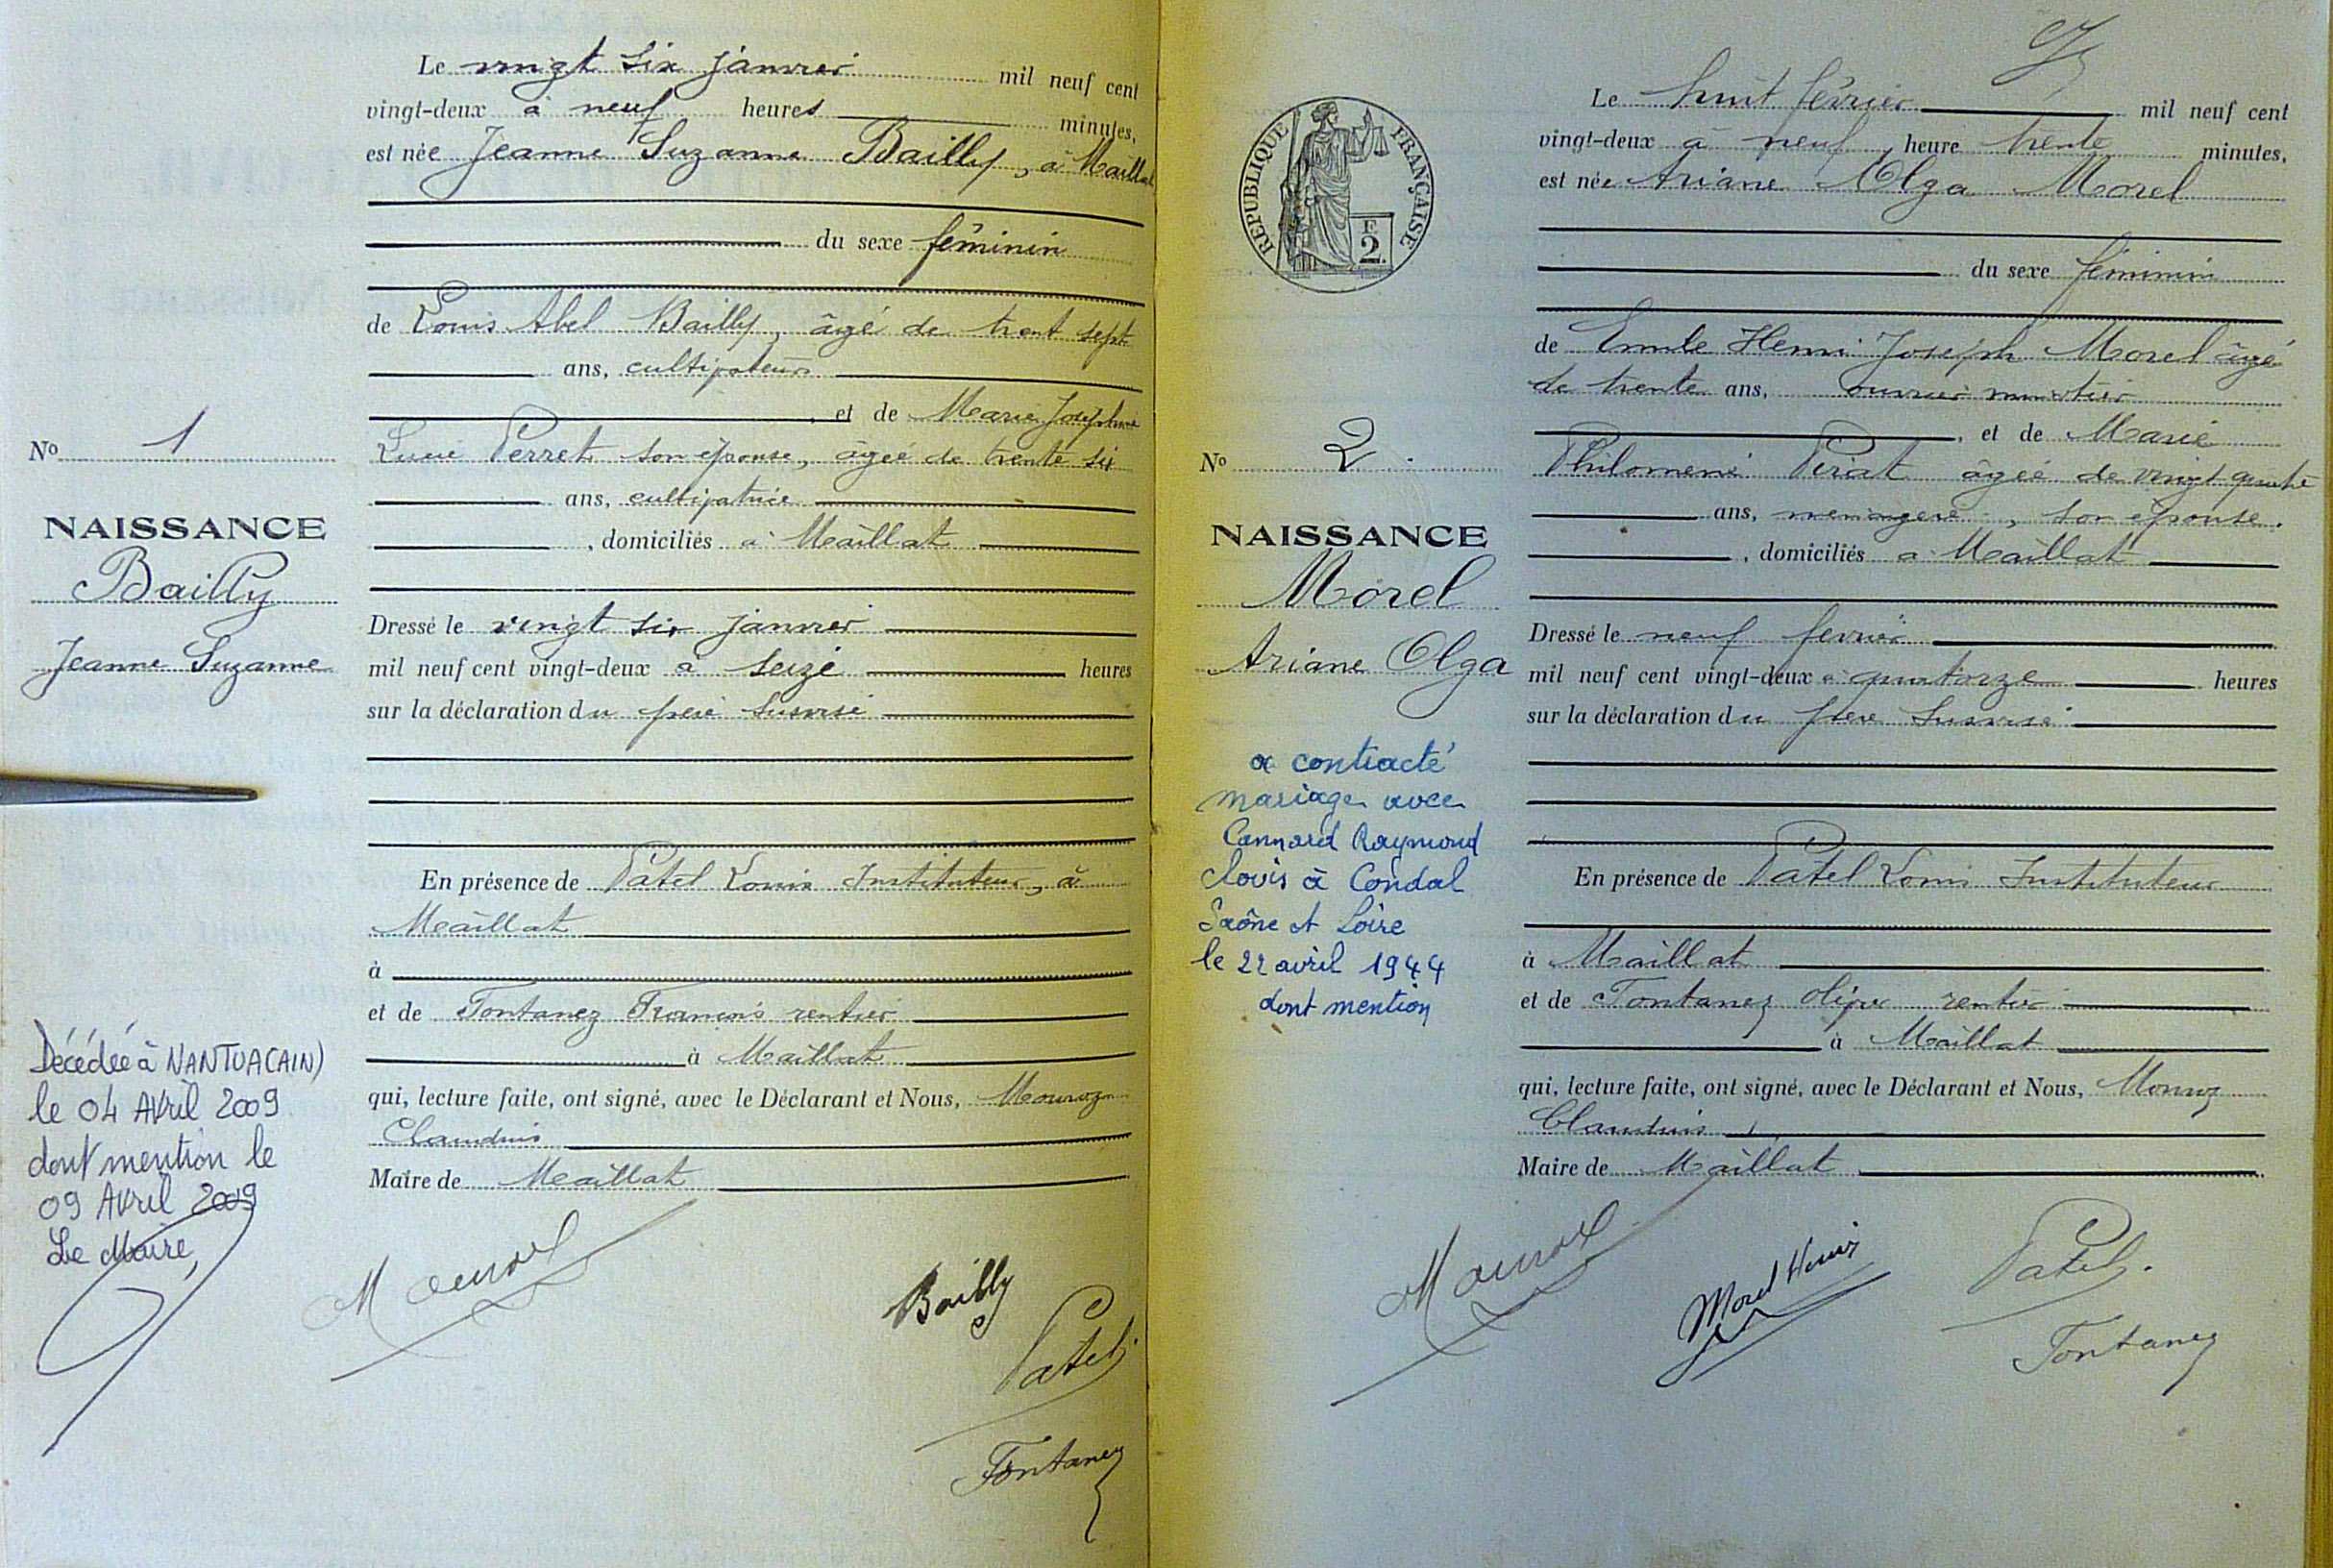 Le vingt six janvier mil neuf cent
vingt-deux à neuf heures minutes,
est née Jeanne Suzanne Bailly, à Maillat
du sexe féminin
de Louis Abel Bailly, âgé de trent sept
ans, cultivateur
et de Marie Joséphine
Lucie Perret son épouse, âgée de trente six
ans, cultivatrice
, domiciliés à Maillat
Dressé le vingt six janvier
mil neuf cent vingt-deux à seize heures
sur la déclaration du père susvisé
En présence de Patel Louis Instituteur, à
Maillat
à
et de Fontanez François rentier
à Maillat
qui, lecture faite, ont signé, avec le Déclarant et Nous, Mouroz
Claudius
Maire de Maillat
Bailly
Patel
Fontanez
No 1
NAISSANCE
Bailly
Jeanne Suzanne
Décédée à NANTUA (AIN)
le 04 Avril 2009
dont mention le
09 Avril 2009
Le Maire,
RÉPUBLIQUE FRANÇAISE
F
2.
No 2.
NAISSANCE
Morel
Ariane Olga
a contracté
mariage avec
Cannard Raymond
Clovis à Condal
Saône et Loire
le 22 avril 1944
dont mention
Le huit février mil neuf cent
vingt-deux à neuf heure trente minutes,
est née Ariane Olga Morel
du sexe féminin
de Emile Henri Joseph Morel âgé
de trente ans, ouvrier
, et de Marie
Philomène Pérat âgée de vingt quatre
ans, ménagère, son épouse.
, domiciliés à Maillat
Dressé le neuf février
mil neuf cent vingt-deux à quatorze heures
sur la déclaration du père susvisé
En présence de Patel Louis Instituteur
à Maillat
et de Fontanez rentier
à Maillat
qui, lecture faite, ont signé, avec le Déclarant et Nous, Mouroz
Claudius
Maire de Maillat
Morel Henri
Patel.
Fontanez